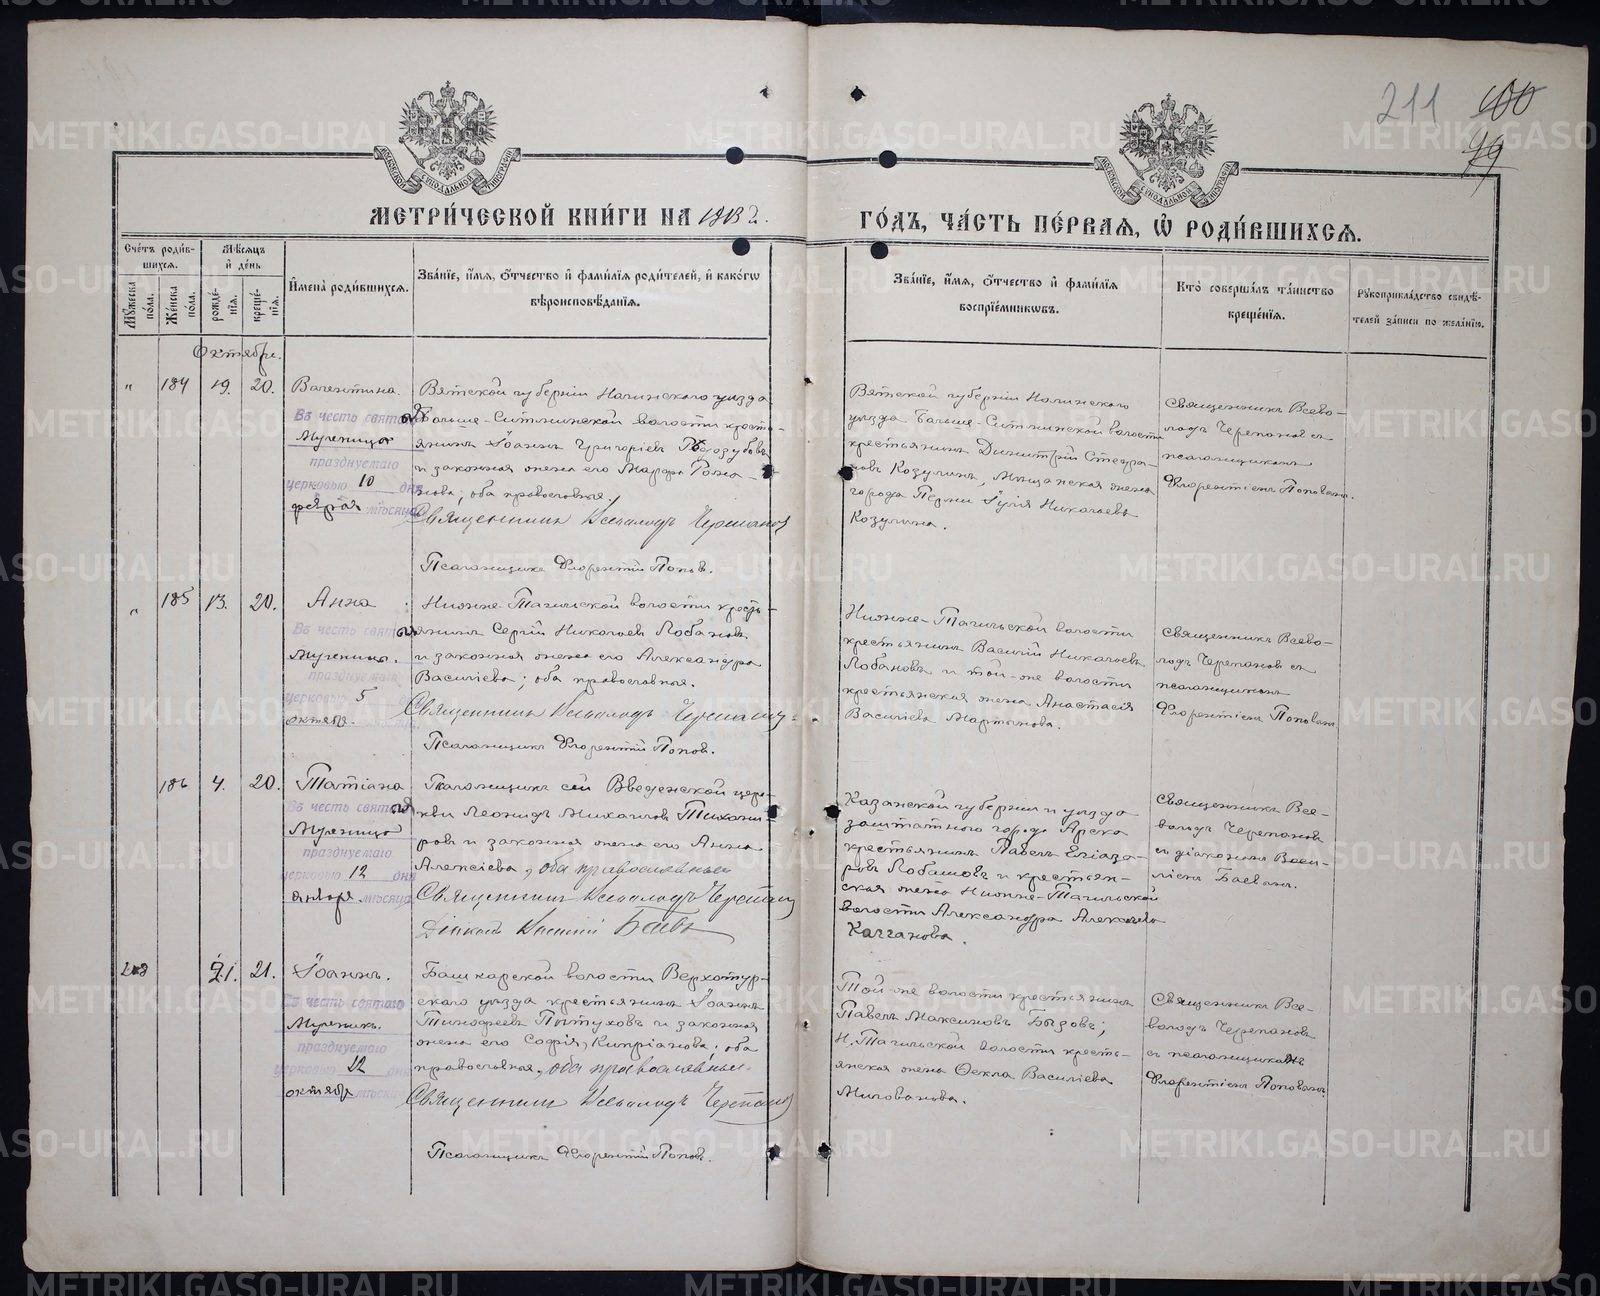 211 100
99
МЕТРИ́ЧЕСКОЙ КНИ́ГИ НА 1913 г.
ГО́ДЪ, ЧА́СТЬ ПЕ́РВАЯ, Ѽ РОДИ́ВШИХСЯ.
Сче́тъ роди́вшихся.
Мѣ́сяцъ и҆ де́нь
Мꙋ́жеска по́ла.
Же́нска по́ла.
рожде́нїѧ.
креще́нїѧ.
И҆мена̀ роди́вшихсѧ.
Зва́нїе, и҆́мѧ, ѻ҆́тчество и҆ фами́лїѧ роди́телей, и҆ како́гѡ
вѣроисповѣ́данїѧ.
Зва́нїе, и҆́мѧ, ѻ҆́тчество и҆ фами́лїѧ
воспрїе́мникѡвъ.
Кто̀ соверша́лъ та́инство
креще́нїѧ.
Рꙋкоприкла́дство свидѣ́-
телей за́писи по жела́нїю.
Октябрь.
" 184 19. 20. Валентина.
Въ честь святой
Мученицы
празднуемаю
церковью 10 дня
февраля мѣсяца
Вятской губерніи Нолинскаго уѣзда
крестья-
янинъ Іоаннъ Григоріевъ
и законная жена его Марѳа Рома-
нова; оба православные.
Священникъ Всеволодъ Черепановъ
Псаломщикъ Флорентій Поповъ.
Вятской губерніи Нолинскаго
уѣзда Больше-Ситминской волости
крестьянинъ Димитрій Стефа-
новъ Козулинъ, Мѣщанская жена
города Перми Іулія Николаевна
Козулина.
Священникъ Всево-
лодъ Черепановъ съ
псаломщикомъ
Флорентіемъ Поповымъ.
" 185 13. 20. Анна
Въ честь святой
Мученицы.
празднуемаю
церковью 5
октября.
Нижне-Тагильской волости кресть-
янинъ Сергій Николаевъ Лобановъ
и законная жена его Александра
Василіева; оба православные.
Священникъ Всеволодъ Черепановъ
Псаломщикъ Флорентій Поповъ.
Нижне-Тагильской волости
крестьянинъ Василій Николаевъ
Лобановъ и той-же волости
крестьянская жена Анастасія
Василіева Мартынова.
Священникъ Всево-
лодъ Черепановъ съ
псаломщикомъ
Флорентіемъ Поповымъ
186 4. 20. Татіана
Въ честь святой
Мученицы
празднуемаю
церковью 12 дня
января мѣсяца
Псаломщикъ сей Введенской цер-
кви Леонидъ Михаиловъ
и законная жена его Анна
Алексіева, оба православные
Священникъ Всеволодъ Черепановъ
Діаконъ Василій Баевъ
Казанской губерніи и уѣзда
заштатнаго города Арска
крестьянинъ Павелъ Еліаза-
ровъ Лобашовъ и крестьян-
ская жена Нижне-Тагильской
волости Александра Алексіева
Калганова.
Священникъ Все-
володъ Черепановъ
съ діакономъ Васи-
ліемъ Баевымъ.
208 21. 21. Іоаннъ.
Въ честь святаго
Мученикъ.
празднуемаю
церковью 12 дня
октября мѣсяца
Башкарской волости Верхотур-
скаго уѣзда крестьянинъ Іоаннъ
Тимофеевъ Пѣтуховъ и законная
жена его Софія Кипріанова; оба
православные, оба православные.
Священникъ Всеволодъ Черепановъ
Псаломщикъ Флорентій Поповъ.
Той-же волости крестьянинъ
Павелъ Максимовъ Бызовъ;
Н.Тагильской волости кресть-
янская жена Ѳекла Василіева
Милованова.
Священникъ Все-
володъ Черепановъ
съ псаломщикомъ
Флорентіемъ Поповымъ
METRIKI.GASO-URAL.RU